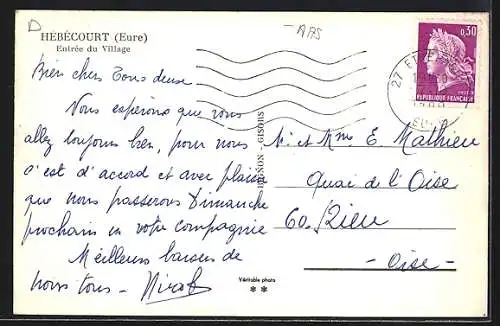 D
- A75
HÉBÉCOURT (Eure)
Entrée du Village
Bien chers Tous deux.
Nous espérons que vous
allez toujours bien, pour nous
c'est d'accord et avec plaisir
que nous passerons Dimanche
prochain en votre compagnie
Meilleurs baisers de
nous tous -
GISORS
Véritable photo
M. et Mme E. Mathieu
Quai de l'Oise
60. Rieu
- Oise -
0,30
REPUBLIQUE FRANÇAISE
27